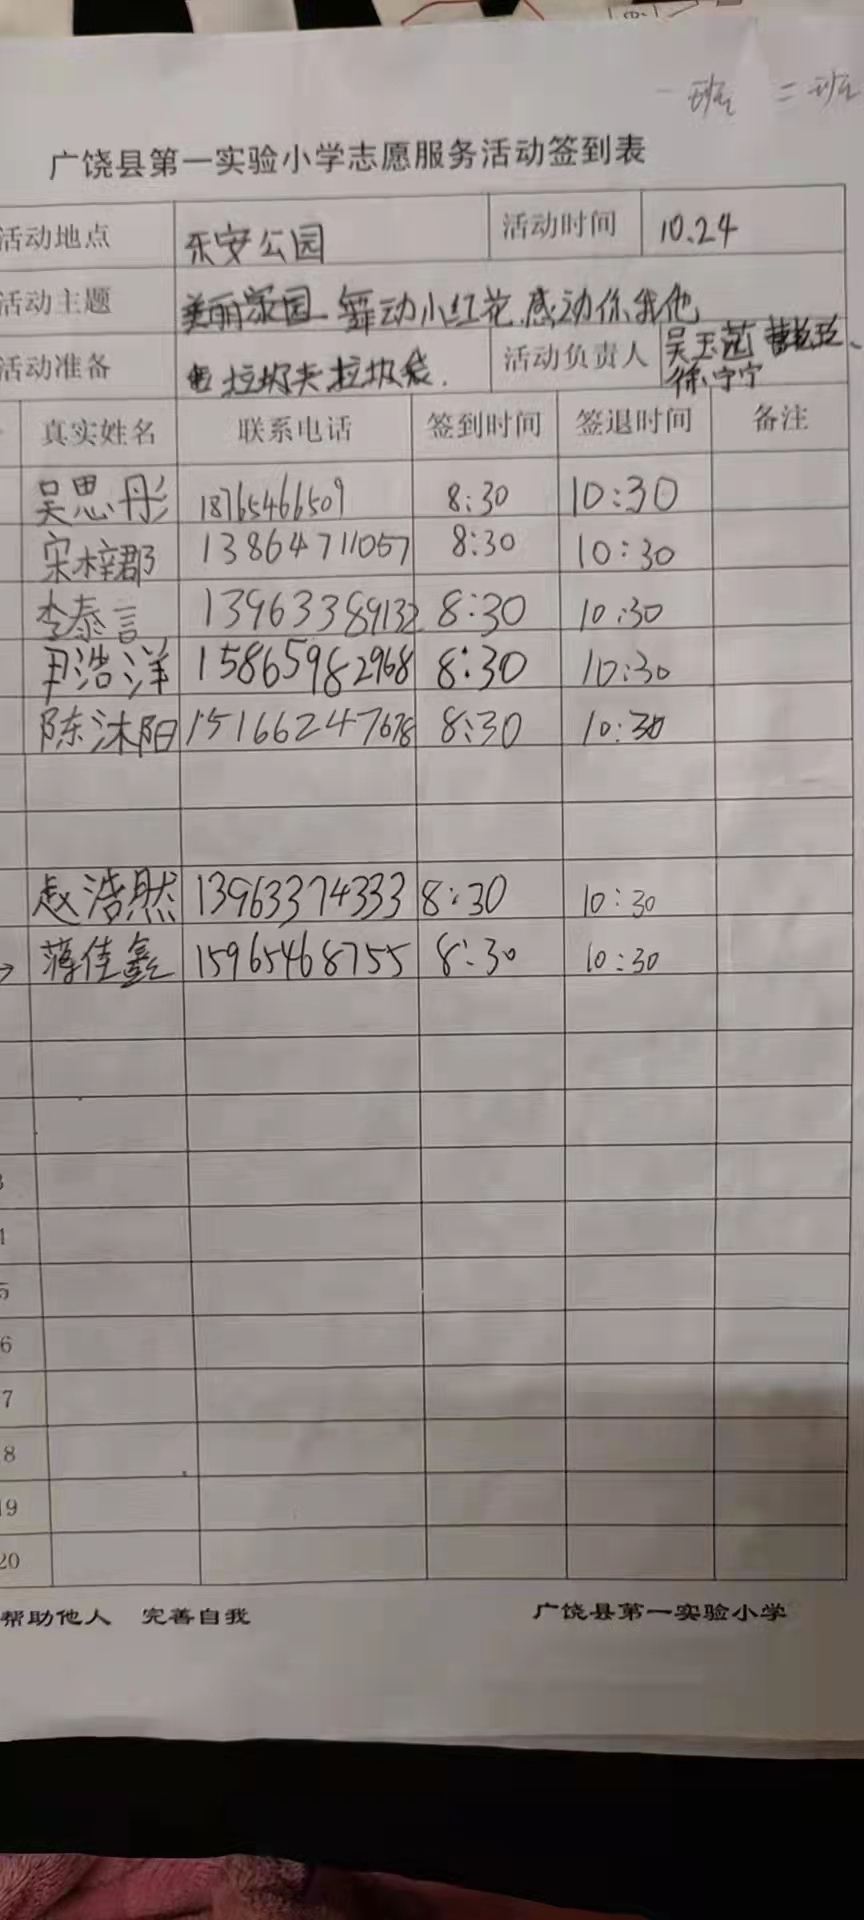 一班 二班
广饶县第一实验小学志愿服务活动签到表
活动地点 乐安公园 活动时间 10.24
活动主题 美丽家园 舞动小红花,感动你我他
活动准备 垃圾夹 垃圾袋. 活动负责人 吴玉茝
徐宁宁
真实姓名 联系电话 签到时间 签退时间 备注
吴思彤 18765466509 8:30 10:30
宋梓郡 13864711057 8:30 10:30
李泰言 13963389132 8:30 10:30
尹浩洋 15865982968 8:30 10:30
陈沐阳 15166247678 8:30 10:30
赵浩然 13963374333 8:30 10:30
蒋佳鑫 15965468755 8:30 10:30
3
4
5
6
7
8
19
20
帮助他人 完善自我 广饶县第一实验小学